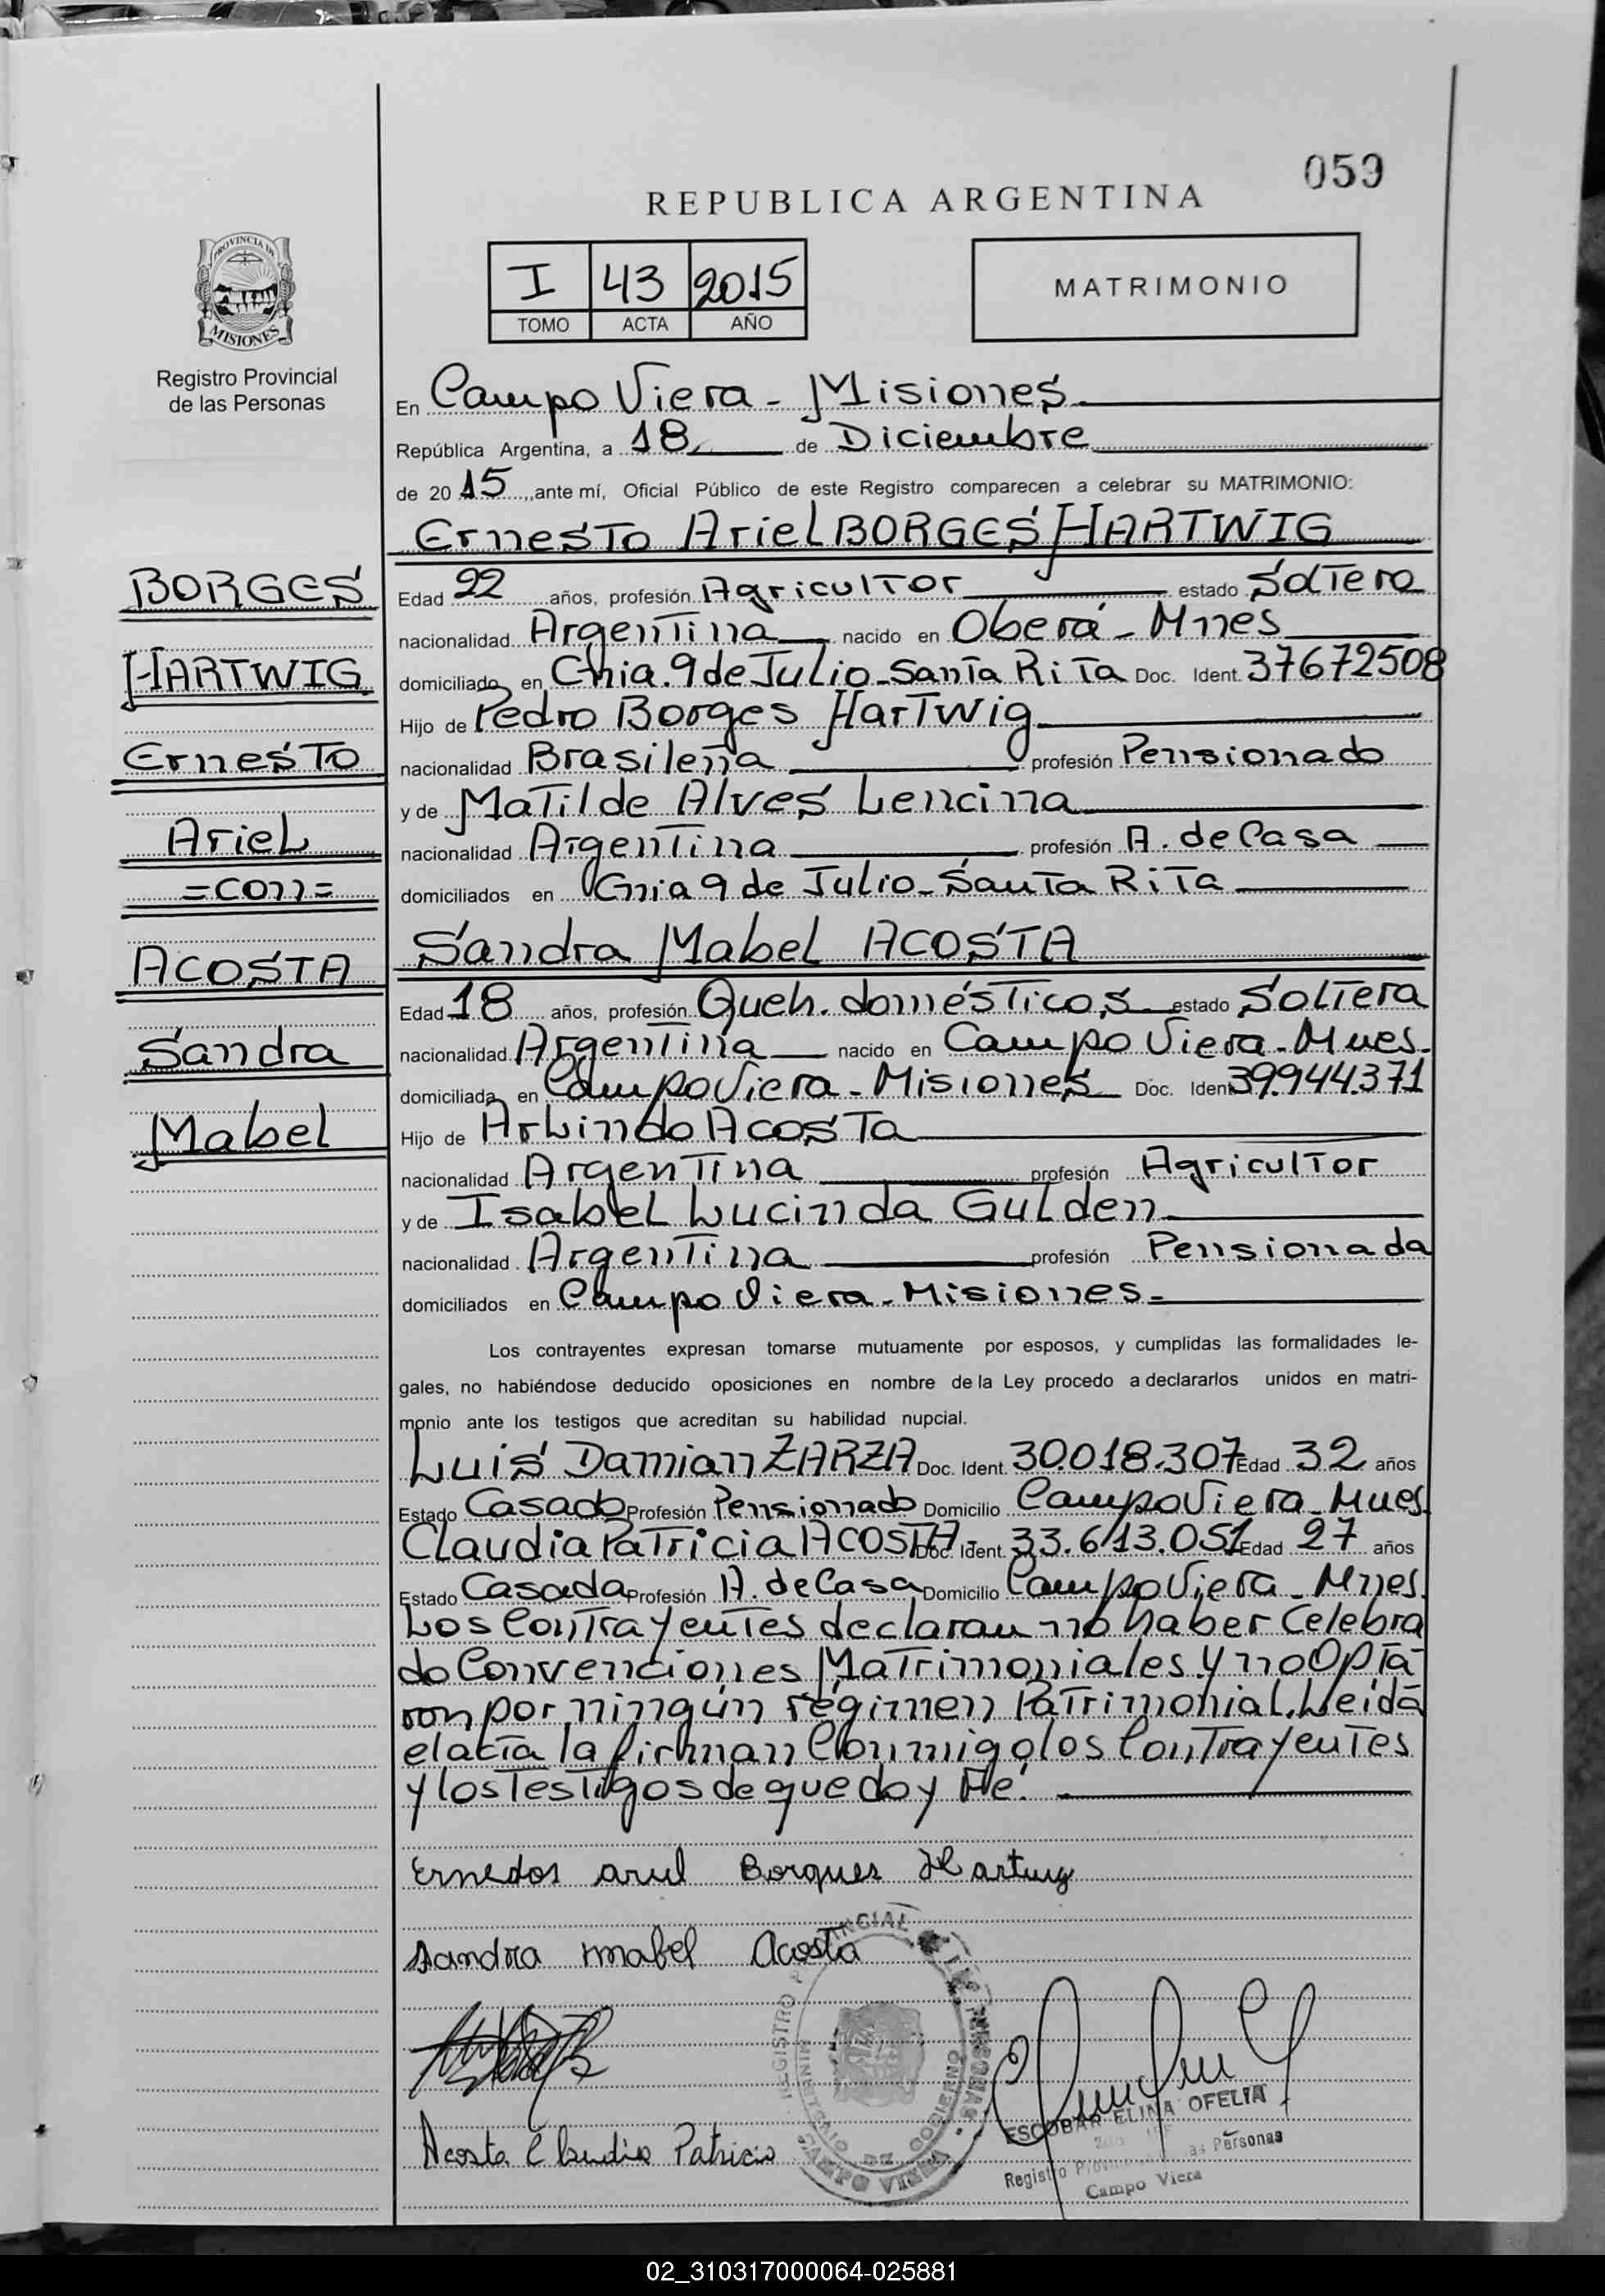 059
REPUBLICA ARGENTINA
I 43 2015
TOMO ACTA AÑO
MATRIMONIO
PROVINCIA DE
MISIONES
Registro Provincial
de las Personas
BORGES
HARTWIG
Ernesto
Ariel
=con=
ACOSTA
Sandra
Mabel
En Campo Viera - Misiones
República Argentina, a 18 de Diciembre
de 20 15, ante mí, Oficial Público de este Registro comparecen a celebrar su MATRIMONIO:
Ernesto Ariel BORGES HARTWIG
Edad 22 años, profesión Agricultor estado Soltero
nacionalidad Argentina nacido en Oberá - Mnes
domiciliado en Cnia. 9 de Julio - Santa Rita Doc. Ident. 37672508
Hijo de Pedro Borges Hartwig
nacionalidad Brasileña profesión Pensionado
y de Matilde Alves Lencina
nacionalidad Argentina profesión A. de Casa
domiciliados en Cnia 9 de Julio - Santa Rita
Sandra Mabel ACOSTA
Edad 18 años, profesión Queh. domésticos estado Soltera
nacionalidad Argentina nacido en Campo Viera - Mnes.
domiciliada en Campo Viera - Misiones Doc. Ident. 39.944.371
Hijo de Arlindo Acosta
nacionalidad Argentina profesión Agricultor
y de Isabel Lucinda Gulden
nacionalidad Argentina profesión Pensionada
domiciliados en Campo Viera - Misiones -
Los contrayentes expresan tomarse mutuamente por esposos, y cumplidas las formalidades le-
gales, no habiéndose deducido oposiciones en nombre de la Ley procedo a declararlos unidos en matri-
monio ante los testigos que acreditan su habilidad nupcial.
Luis Damian ZARZA Doc. Ident. 30.018.307 Edad 32 años
Estado Casado Profesión Pensionado Domicilio Campo Viera - Mnes
Claudia Patricia ACOSTA - Doc. Ident. 33.613.051 Edad 27 años
Estado Casada Profesión A. de Casa Domicilio Campo Viera - Mnes.
Los Contrayentes declaran no haber Celebra
do Convenciones Matrimoniales y no Opta
ron por ningún régimen Patrimonial. Leida
el acta la firman Conmigo los Contrayentes
y los Testigos de que doy Fé.
Ernedos arul Borques Hartwg
Sandra mabel Acosta
Acosta Claudia Patricia
REGISTRO PROVINCIAL DE LAS PERSONAS
MINISTERIO DE GOBIERNO
CAMPO VIERA
ESCOBAR ELINA OFELIA
Registro Provincial de las Personas
Campo Viera
02_310317000064-025881